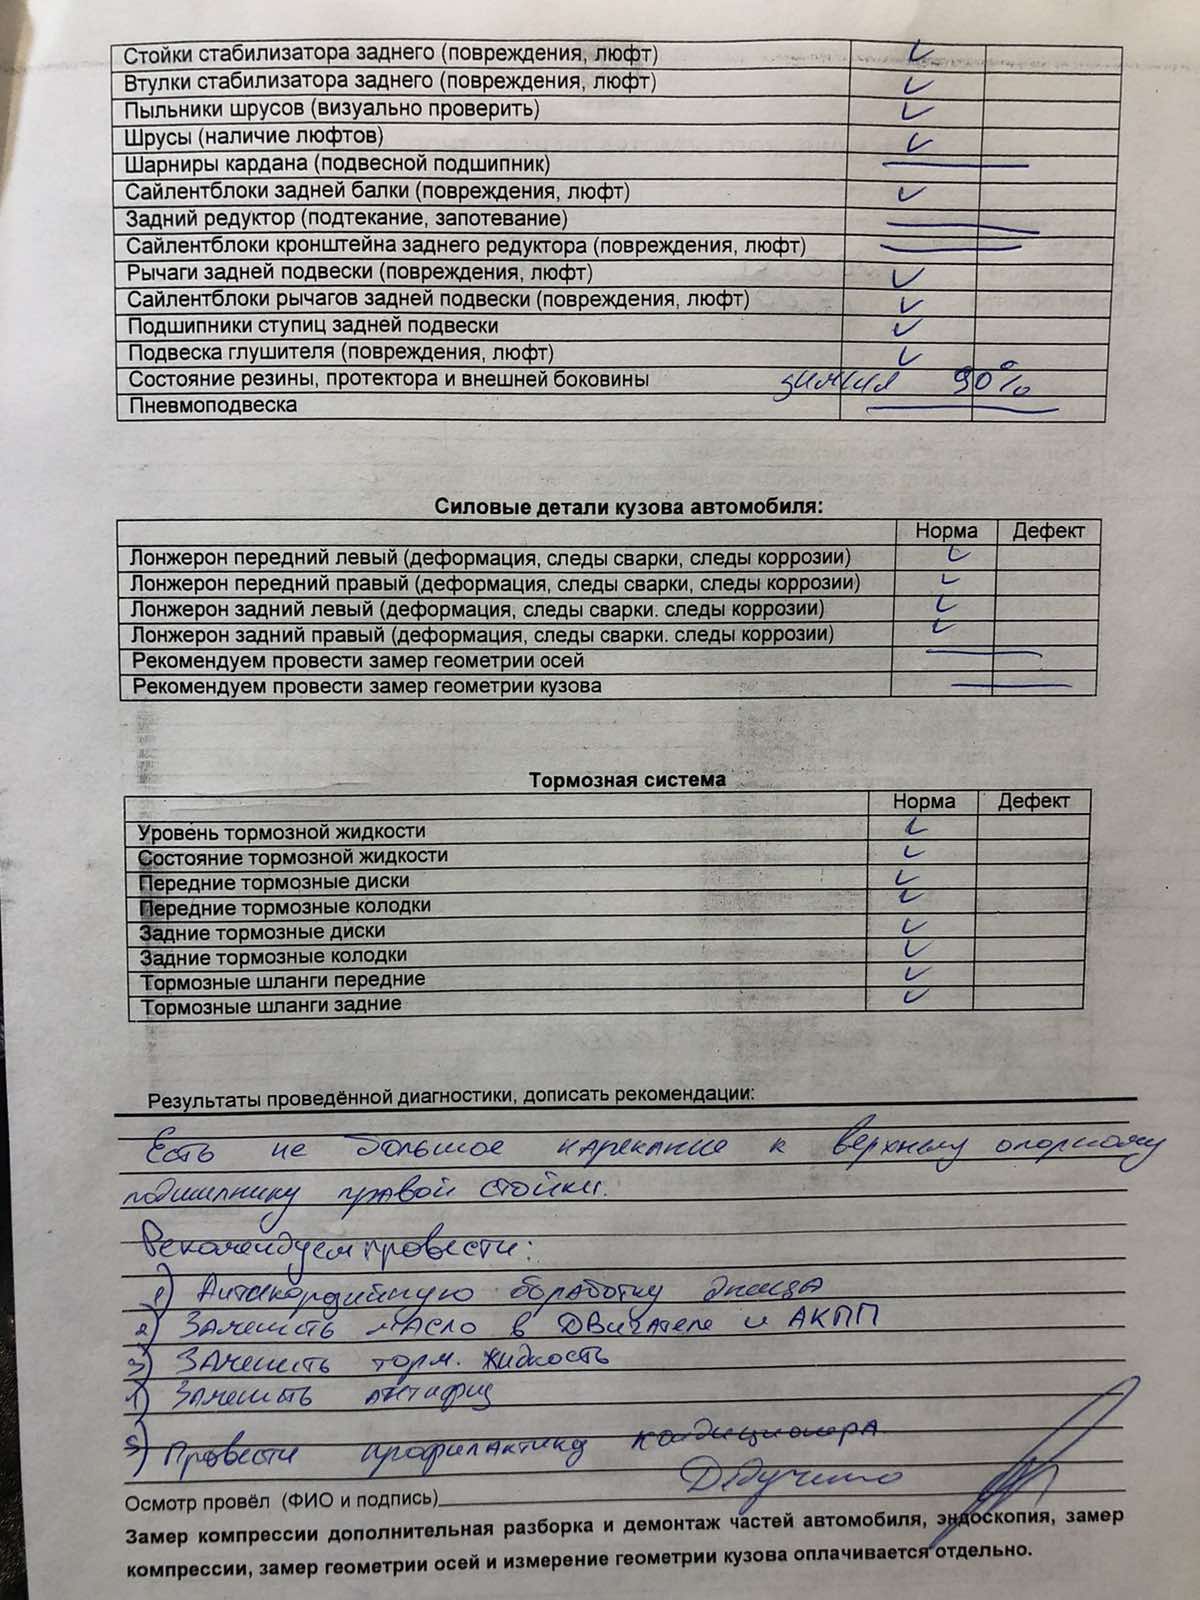 Стойки стабилизатора заднего (повреждения, люфт)
Втулки стабилизатора заднего (повреждения, люфт)
Пыльники шрусов (визуально проверить)
Шрусы (наличие люфтов)
Шарниры кардана (подвесной подшипник)
Сайлентблоки задней балки (повреждения, люфт)
Задний редуктор (подтекание, запотевание)
Сайлентблоки кронштейна заднего редуктора (повреждения, люфт)
Рычаги задней подвески (повреждения, люфт)
Сайлентблоки рычагов задней подвески (повреждения, люфт)
Подшипники ступиц задней подвески
Подвеска глушителя (повреждения, люфт)
Состояние резины, протектора и внешней боковины зимняя 90%
Пневмоподвеска
Силовые детали кузова автомобиля:
Норма Дефект
Лонжерон передний левый (деформация, следы сварки, следы коррозии)
Лонжерон передний правый (деформация, следы сварки, следы коррозии)
Лонжерон задний левый (деформация, следы сварки. следы коррозии)
Лонжерон задний правый (деформация, следы сварки. следы коррозии)
Рекомендуем провести замер геометрии осей
Рекомендуем провести замер геометрии кузова
Тормозная система
Норма Дефект
Уровень тормозной жидкости
Состояние тормозной жидкости
Передние тормозные диски
Передние тормозные колодки
Задние тормозные диски
Задние тормозные колодки
Тормозные шланги передние
Тормозные шланги задние
Результаты проведённой диагностики, дописать рекомендации:
Есть не большое нарекание к верхнему опорному
подшипнику правой стойки.
Рекомендуем провести:
1) днища
2) Заменить масло в двигателе и АКПП
3) Заменить торм. жидкость
4) Заменить
5) Провести профилактику кондиционера.
Осмотр провёл (ФИО и подпись)
Замер компрессии дополнительная разборка и демонтаж частей автомобиля, эндоскопия, замер
компрессии, замер геометрии осей и измерение геометрии кузова оплачивается отдельно.